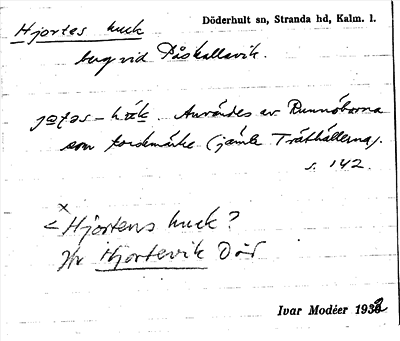 Hjortes huck
Döderhult sn, Stranda hd, Kalm. l.
berg vid Påskallavik.
Användes av Runnöborna
som landmärke (jämte Träthällarna).
s. 142.
< × Hjortens huck?
Jfr Hjortevik Död
Ivar Modéer 1932